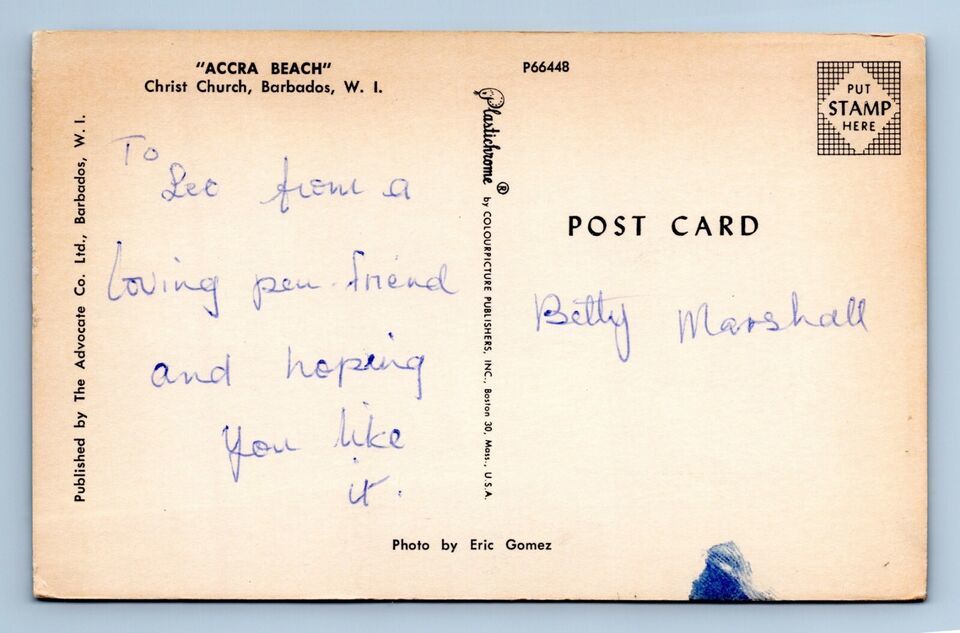 "ACCRA BEACH"
Christ Church, Barbados, W. I.
P66448
PUT
STAMP
HERE
Published by The Advocate Co. Ltd., Barbados, W. I.
To
Leo from a
loving pen-friend
and hoping
you like
it.
Plastichrome ® by COLOURPICTURE PUBLISHERS, INC., Boston 30, Mass., U.S.A.
POST CARD
Betty Marshall
Photo by Eric Gomez